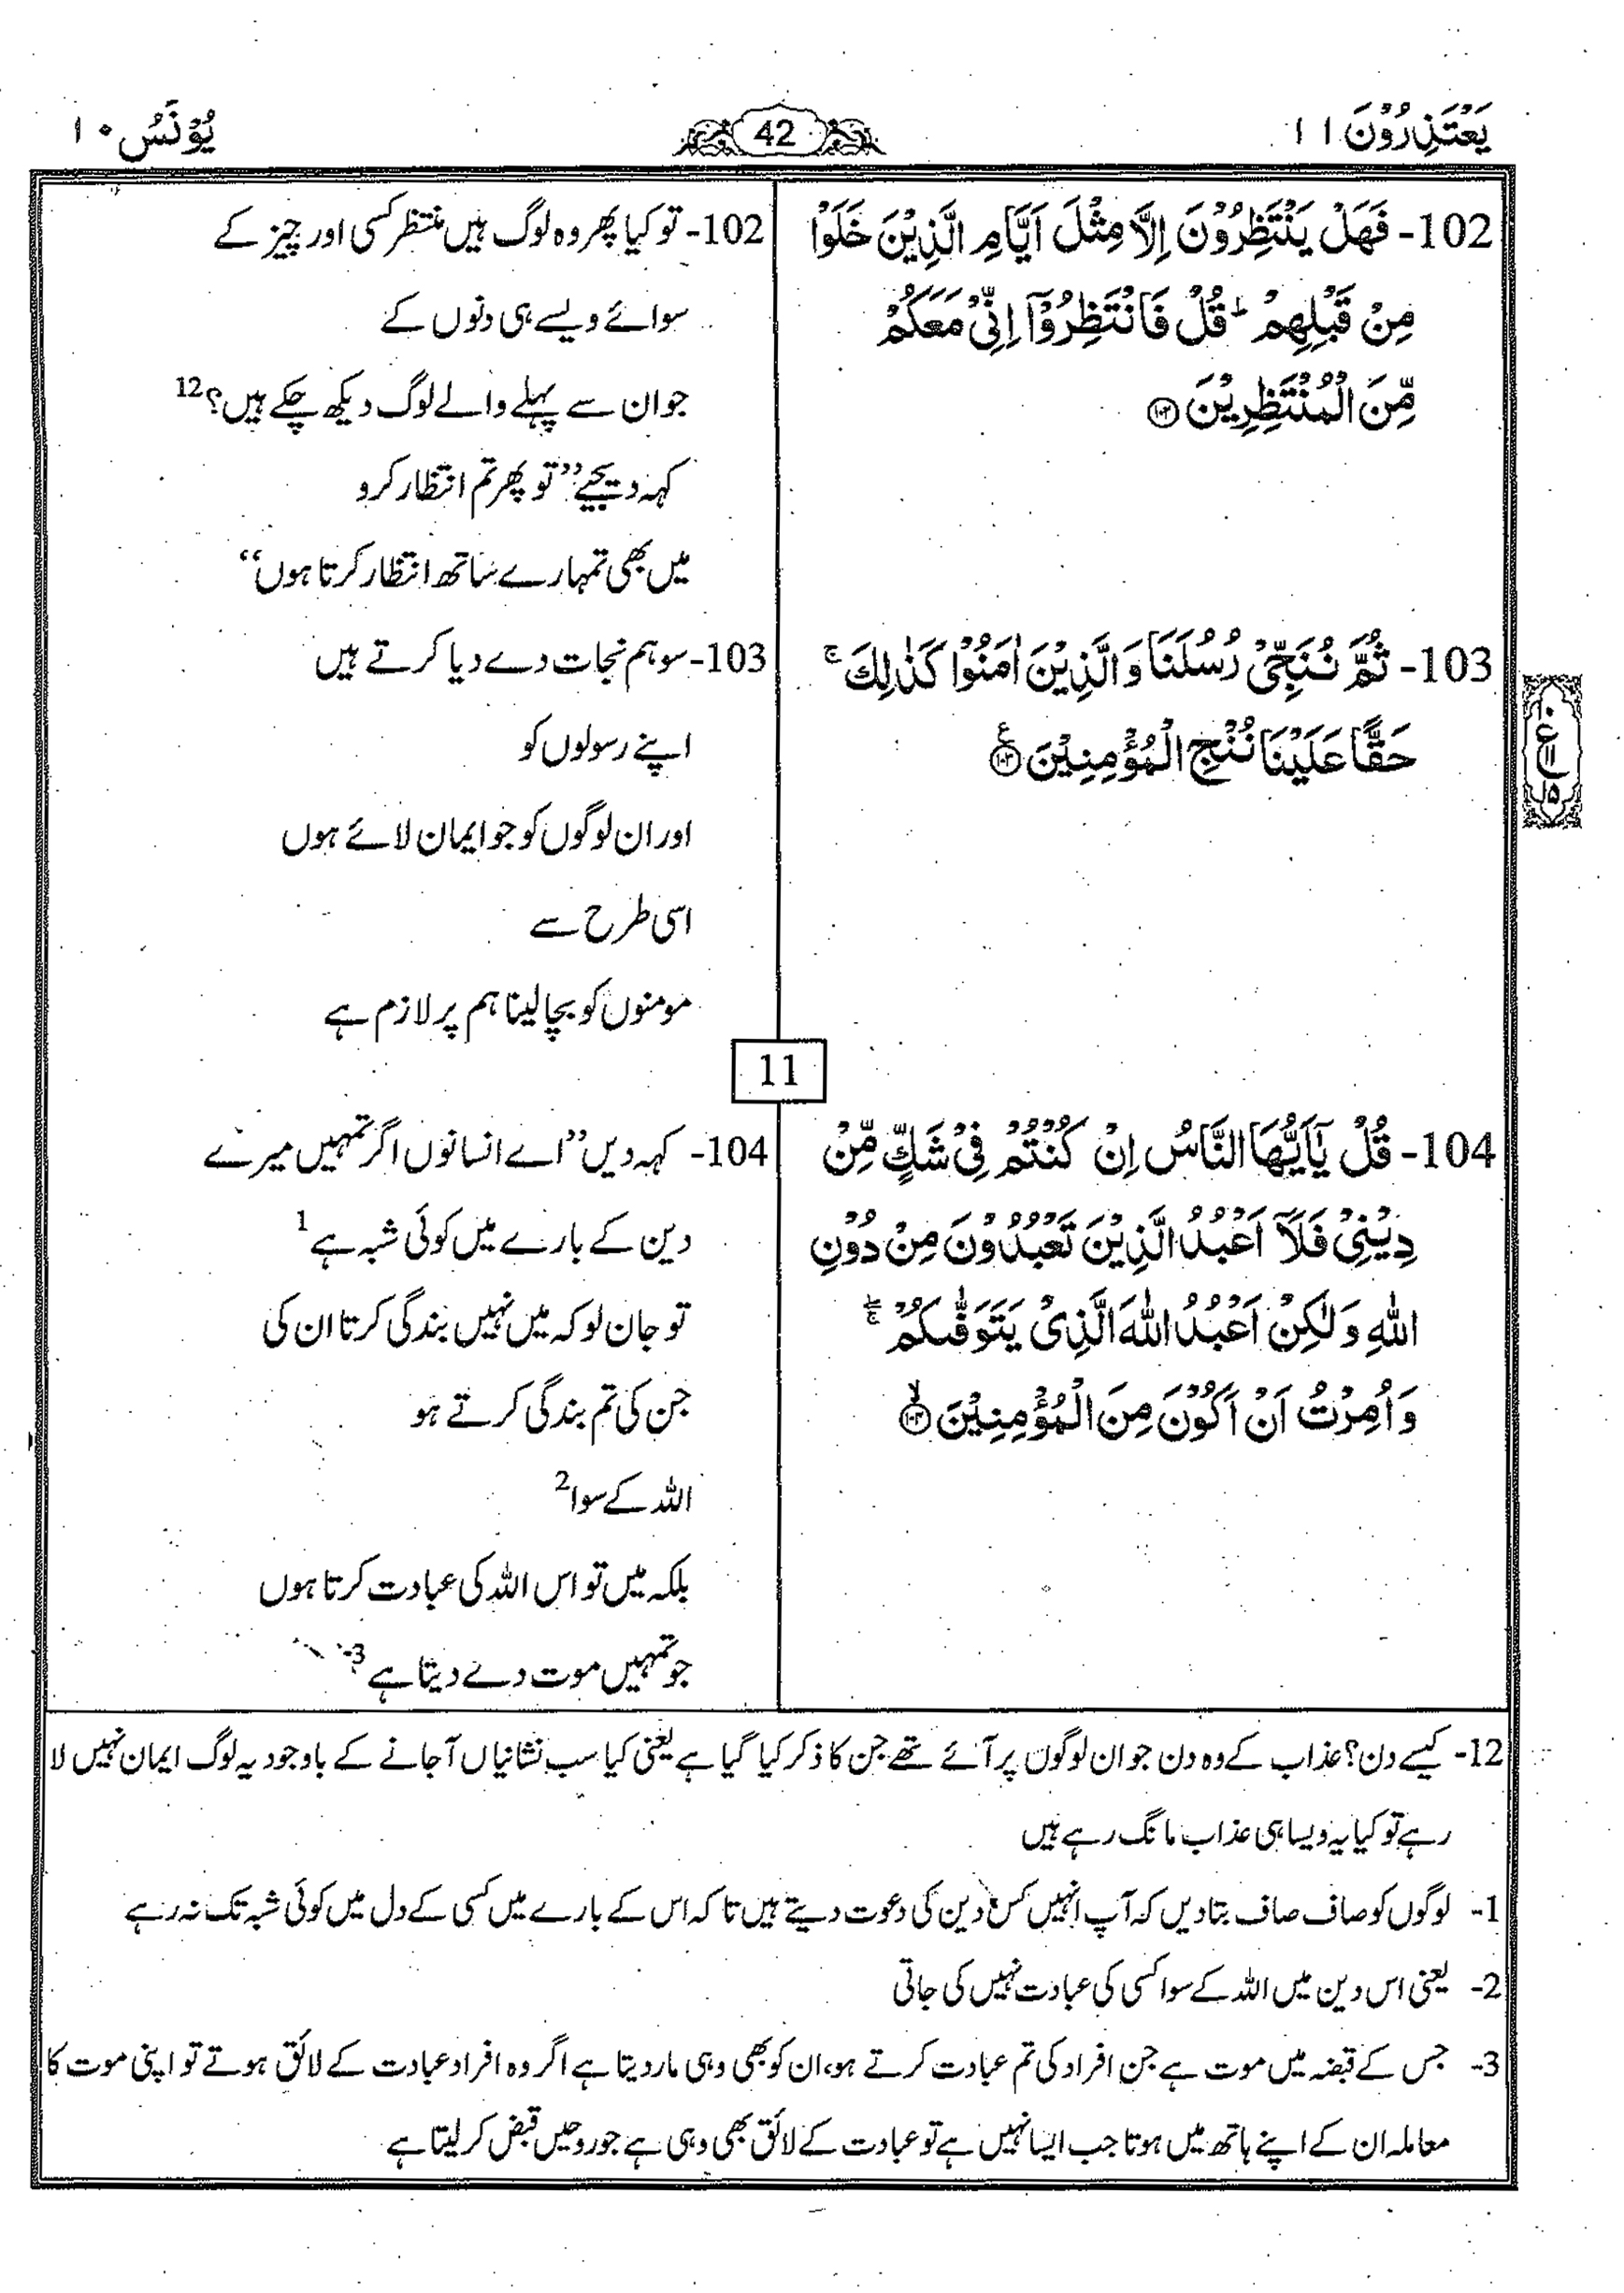 یَعْتَذِرُوْنَ ۱۱
42
یُوْنَسُ ۱۰
102- فَهَلْ یَنْتَظِرُوْنَ اِلَّا مِثْلَ اَیَّامِ الَّذِیْنَ خَلَوْا
مِنْ قَبْلِهِمْ ؕ قُلْ فَانْتَظِرُوْۤا اِنِّیْ مَعَكُمْ
مِّنَ الْمُنْتَظِرِیْنَ ﴿۱۰۲﴾
103- ثُمَّ نُنَجِّیْ رُسُلَنَا وَ الَّذِیْنَ اٰمَنُوْا كَذٰلِكَ ۚ
حَقًّا عَلَیْنَا نُنْجِ الْمُؤْمِنِیْنَ ﴿۱۰۳﴾ ع
104- قُلْ یٰۤاَیُّهَا النَّاسُ اِنْ كُنْتُمْ فِیْ شَكٍّ مِّنْ
دِیْنِیْ فَلَاۤ اَعْبُدُ الَّذِیْنَ تَعْبُدُوْنَ مِنْ دُوْنِ
اللّٰهِ وَ لٰكِنْ اَعْبُدُ اللّٰهَ الَّذِیْ یَتَوَفّٰىكُمْ ۖۚ
وَ اُمِرْتُ اَنْ اَكُوْنَ مِنَ الْمُؤْمِنِیْنَ ﴿۱۰۴﴾ۙ
102- تو کیا پھر وہ لوگ ہیں منتظر کسی اور چیز کے
سوائے ویسے ہی دنوں کے
جو ان سے پہلے والے لوگ دیکھ چکے ہیں؟12
کہہ دیجیے ’’تو پھر تم انتظار کرو
میں بھی تمہارے ساتھ انتظار کرتا ہوں‘‘
103- سو ہم نجات دے دیا کرتے ہیں
اپنے رسولوں کو
اور ان لوگوں کو جو ایمان لائے ہوں
اسی طرح سے
مومنوں کو بچا لینا ہم پر لازم ہے
11
104- کہہ دیں ’’اے انسانوں اگر تمہیں میرے
دین کے بارے میں کوئی شبہ ہے1
تو جان لو کہ میں نہیں بندگی کرتا ان کی
جن کی تم بندگی کرتے ہو
اللہ کے سوا2
بلکہ میں تو اس اللہ کی عبادت کرتا ہوں
جو تمہیں موت دے دیتا ہے3
12- کیسے دن؟ عذاب کے وہ دن جو ان لوگوں پر آئے تھے جن کا ذکر کیا گیا ہے یعنی کیا سب نشانیاں آ جانے کے باوجود یہ لوگ ایمان نہیں لا
رہے تو کیا یہ ویسا ہی عذاب مانگ رہے ہیں
1- لوگوں کو صاف صاف بتا دیں کہ آپ انہیں کس دین کی دعوت دیتے ہیں تا کہ اس کے بارے میں کسی کے دل میں کوئی شبہ تک نہ رہے
2- یعنی اس دین میں اللہ کے سوا کسی کی عبادت نہیں کی جاتی
3- جس کے قبضہ میں موت ہے جن افراد کی تم عبادت کرتے ہو، ان کو بھی وہی مار دیتا ہے اگر وہ افراد عبادت کے لائق ہوتے تو اپنی موت کا
معاملہ ان کے اپنے ہاتھ میں ہوتا جب ایسا نہیں ہے تو عبادت کے لائق بھی وہی ہے جو روحیں قبض کر لیتا ہے